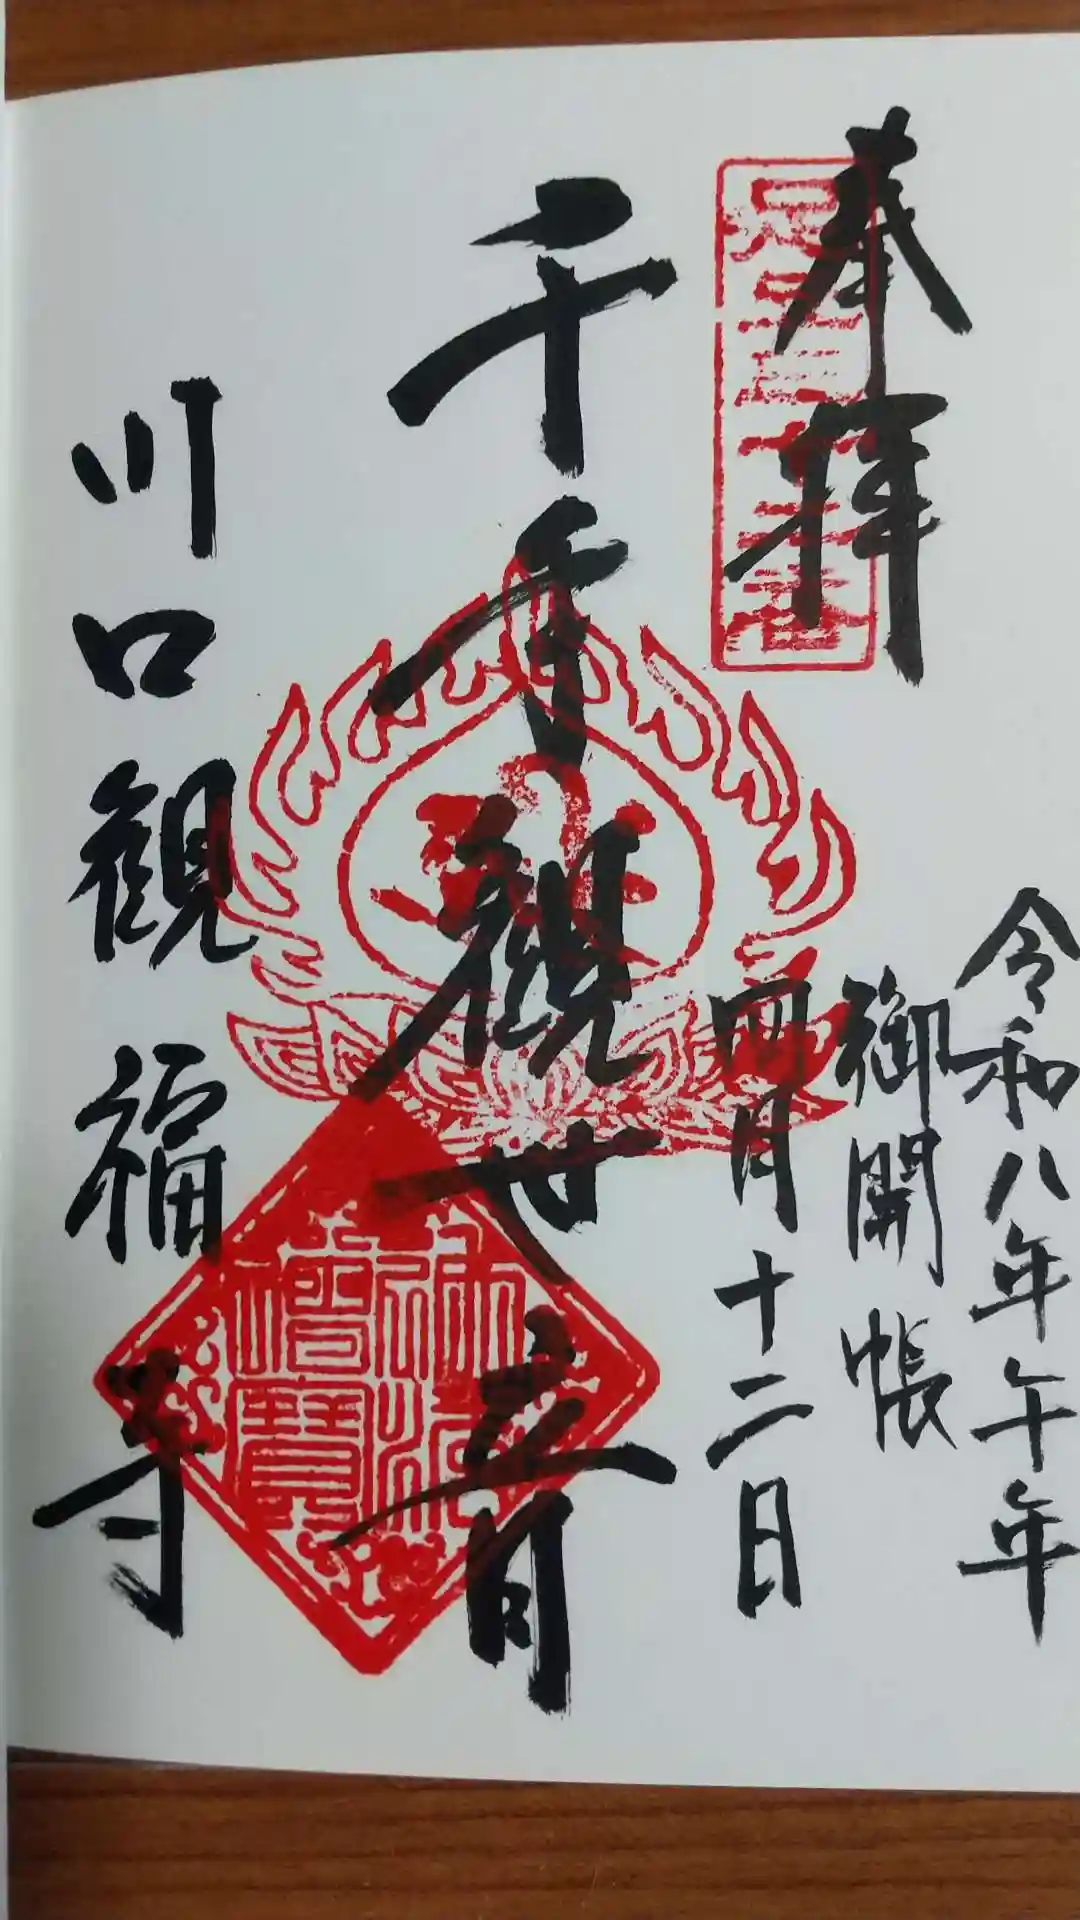 奉拝
令和八年午年
御開帳
四月十二日
千手観世音
川口観福寺
佛法僧寶